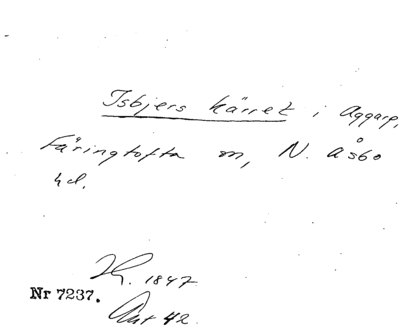 Isbjers kärret i Aggarp,
Färingtofta m, N. Åsbo
hd.
H. 1847
Nr 7237.
Ant 42.